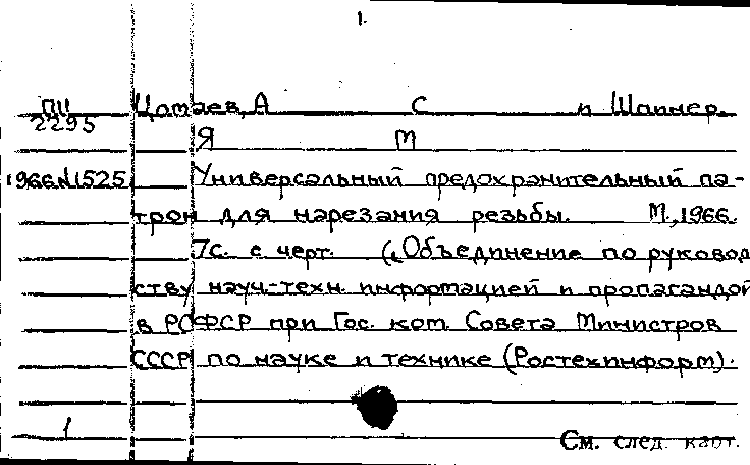 1.
ПЦ Цотаев, А С и Шапиер.
2295 Я М
1966N1525 Универсальный предохранительный па-
трон для нарезания резьбы. М., 1966.
7с. с черт. („Объединение по руковод
ству науч.-техн. информацией и пропагандой
в РСФСР при Гос. ком. Совета Министров
СССР по науке и технике (Ростехинформ).
1
См. след. карт.